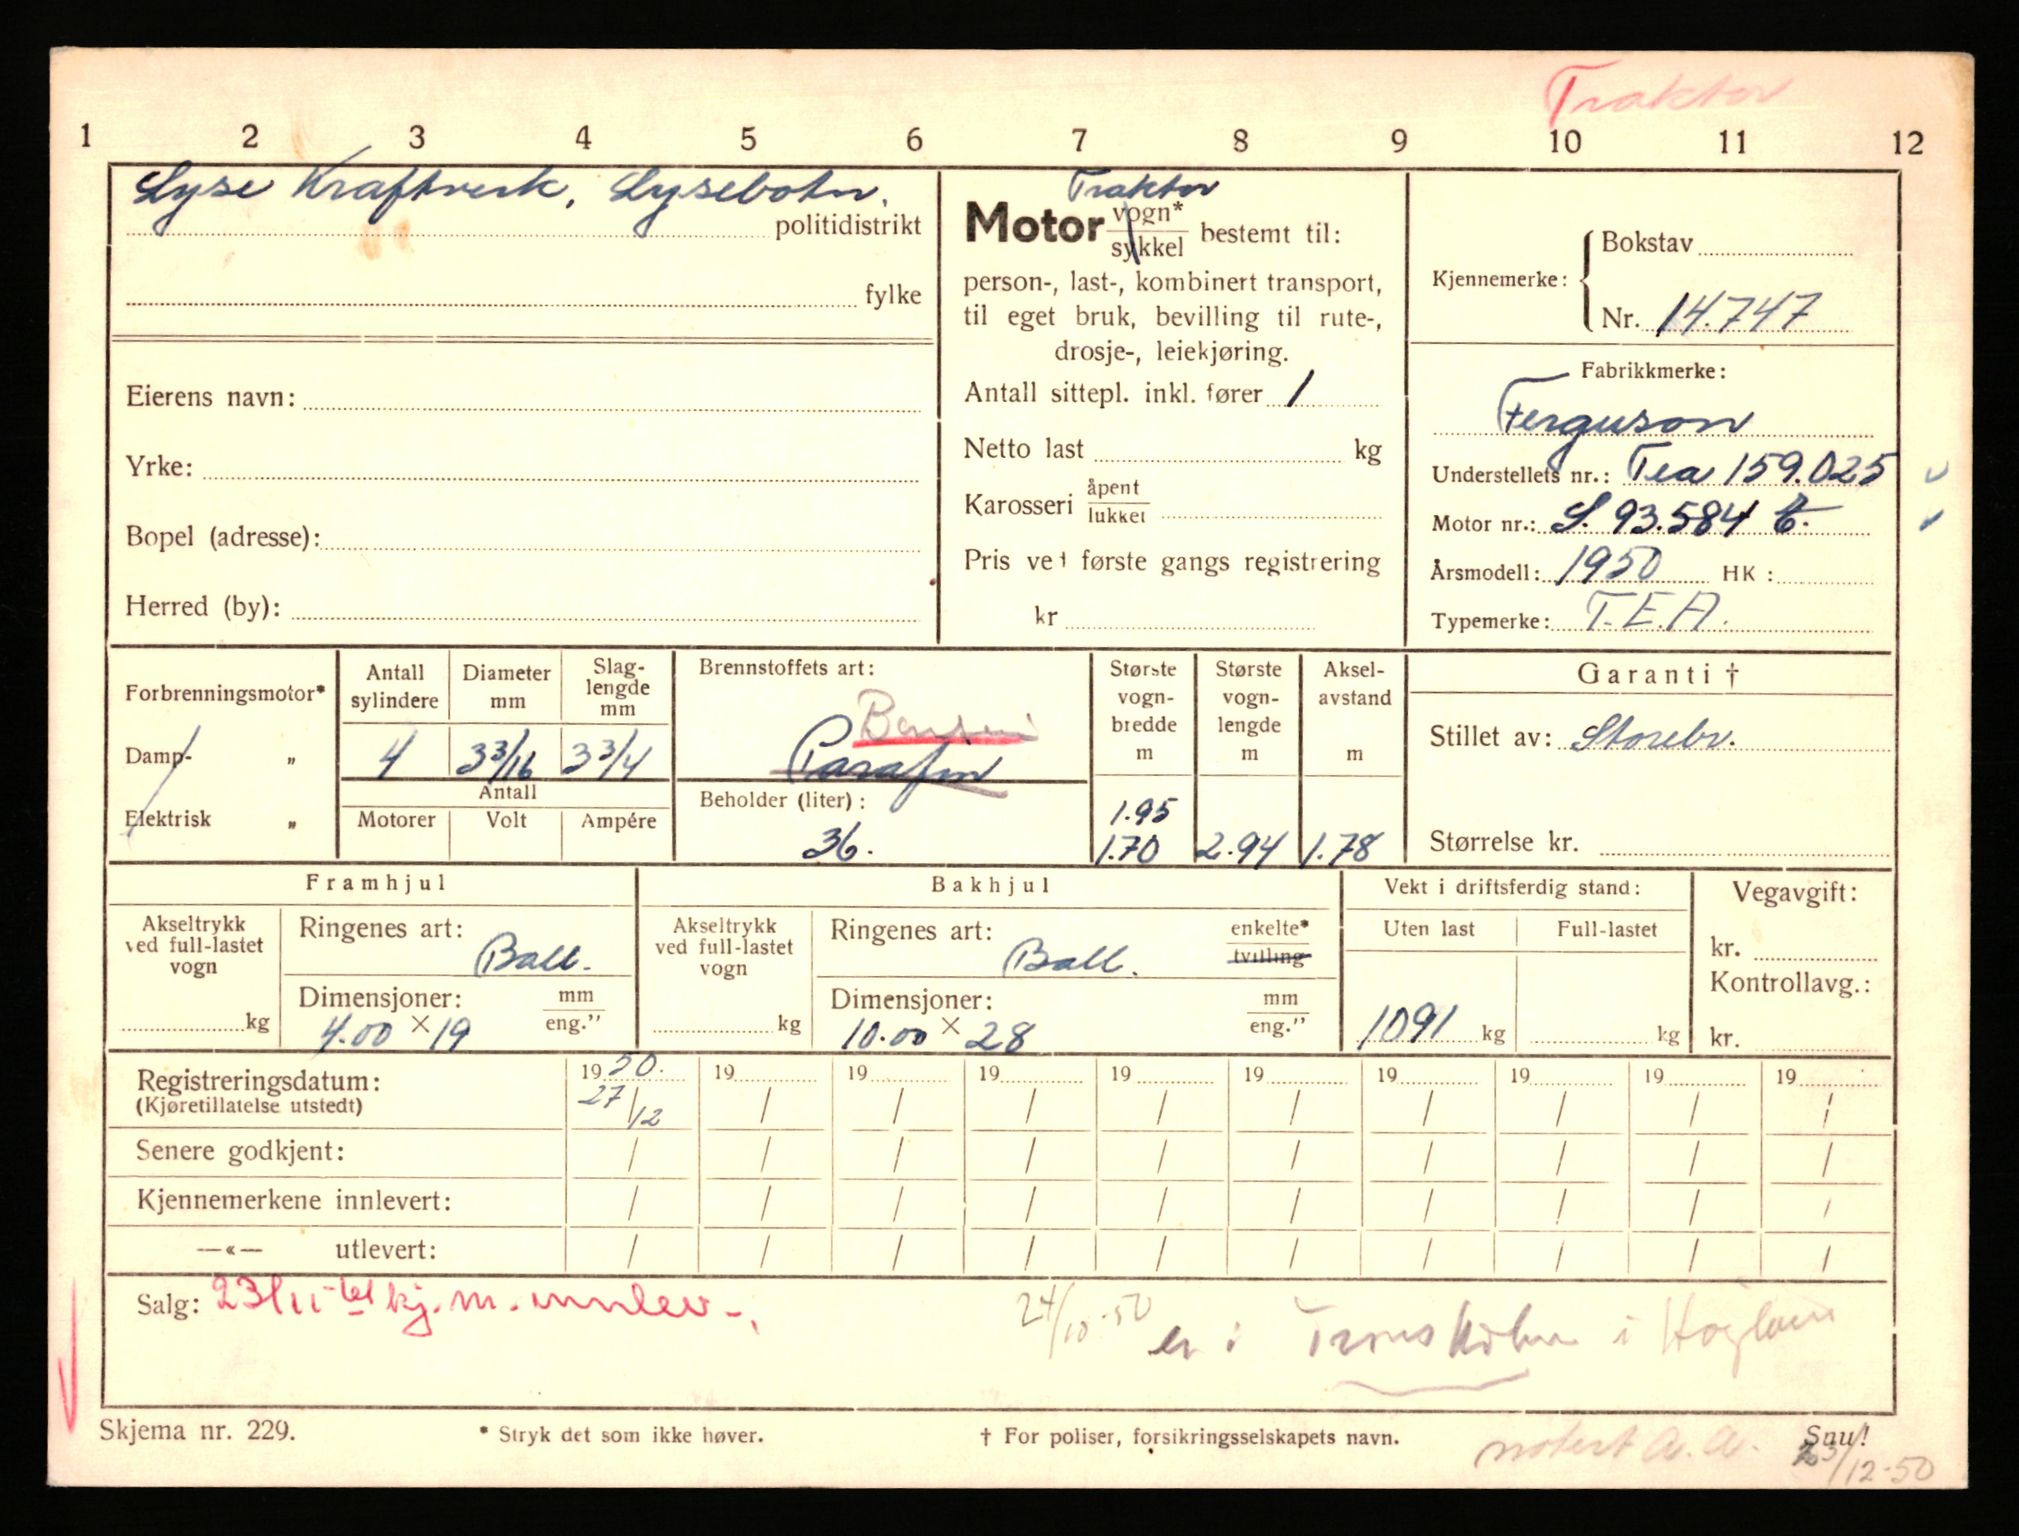 Traktor
1 2 3 4 5 6 7 8 9 10 11 12
Lyse Kraftverk, Lysebotn.
politidistrikt
fylke
Eierens navn:
Yrke:
Bopel (adresse):
Herred (by):
Traktor
Motor vogn*
sykkel bestemt til:
person-, last-, kombinert transport,
til eget bruk, bevilling til rute-,
drosje-, leiekjøring.
Antall sittepl. inkl. fører 1
Netto last kg
Karosseri åpent
lukket
Pris ved første gangs registrering
kr
Kjennemerke: Bokstav
Nr. 14.747
Fabrikkmerke:
Ferguson
Understellets nr.: Tea 159.025
Motor nr.: S. 93.584 E.
Årsmodell: 1950 HK:
Typemerke: T.E.A.
Forbrenningsmotor*
Damp- „
Elektrisk „
Antall sylindere
4
Diameter mm
3 3/16
Slag-
lengde
mm
3 3/4
Antall
Motorer Volt Ampére
Brennstoffets art:
Bensin
Parafin
Beholder (liter):
36.
Største
vogn-
bredde
m
1.95
1.70
Største
vogn-
lengde
m
2.94
Aksel-
avstand
m
1.78
Garanti †
Stillet av: Storebr.
Størrelse kr.
Framhjul
Akseltrykk
ved full-lastet
vogn
kg
Ringenes art:
Ball.
Dimensjoner: mm
eng."
4.00 × 19
Bakhjul
Akseltrykk
ved full-lastet
vogn
kg
Ringenes art: enkelte*
tvilling
Ball.
Dimensjoner: mm
eng."
10.00 × 28
Vekt i driftsferdig stand:
Uten last Full-lastet
1091 kg kg
Vegavgift:
kr.
Kontrollavg.:
kr.
Registreringsdatum: 1950. 19 19 19 19 19 19 19 19 19
(Kjøretillatelse utstedt) 27/12 / / / / / / / / /
Senere godkjent: / / / / / / / / / /
Kjennemerkene innlevert: / / / / / / / / / /
—«— utlevert: / / / / / / / / / /
Salg: 23/11- kj.m. innlev-.
24/10-50 er i i Høgland
Skjema nr. 229.
* Stryk det som ikke høver.
† For poliser, forsikringsselskapets navn.
Snu!
notert A.A. 23/12-50